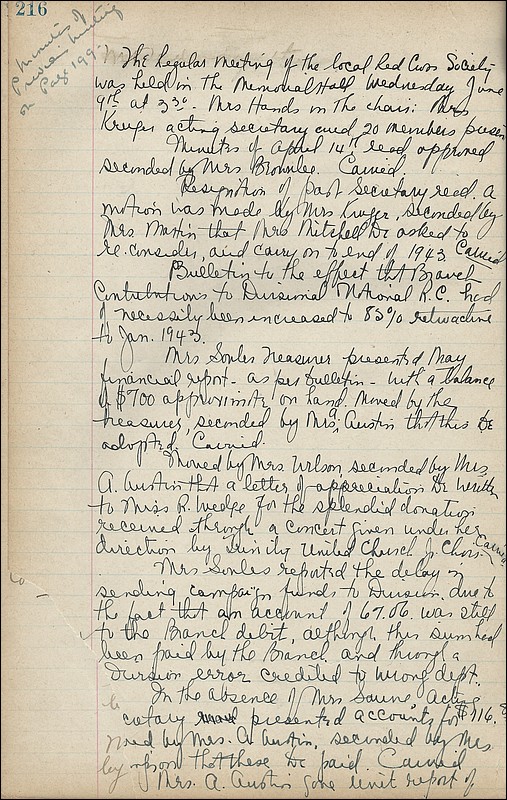 216
Minutes of
previous meeting
on Page 199
The Regular meeting of the local Red Cross Society
was held in the Memorial Hall Wednesday June
9th at 3.30 - Mrs Hands in the chair: Mrs
Kruger acting secretary and 20 members present
Minutes of April 14th read approved
seconded by Mrs Brownlee. Carried.
Resignation of past Secretary read. A
motion was made by Mrs Kruger, seconded by
Mrs. Martin that Mrs Mitchell be asked to
re-consider, and carry on to end of 1943 Carried
Bulletin to the effect that Branch
Contributions to Divisional National R.C. had
of necessity been increased to 85% retroactive
to Jan. 1943.
Mrs Soules Treasurer presented May
financial report - as per bulletin - with a balance
of $700 approximate on hand. Moved by the
treasurer, seconded by Mrs. A. Austin that this be
adopted. Carried.
Moved by Mrs. Wilson, seconded by Mrs.
A. Austin that a letter of appreciation be written
to Miss R. Wedge for the splendid donation
received through a concert given under her
direction by Trinity United Church Jr. Choir - Carried
Mrs Soules reported the delay in
sending campaign funds to Division. due to
the fact that an account of 67.06. was still
to the Branch debit, although this sum had
been paid by the Branch. and through a
Division error credited to wrong dept.
In the absence of Mrs acting
cretary presented accounts for $716.
Moved by Mrs. A. Austin, seconded by Mrs
that these be paid. Carried
Mrs. A. Austin gave unit report of